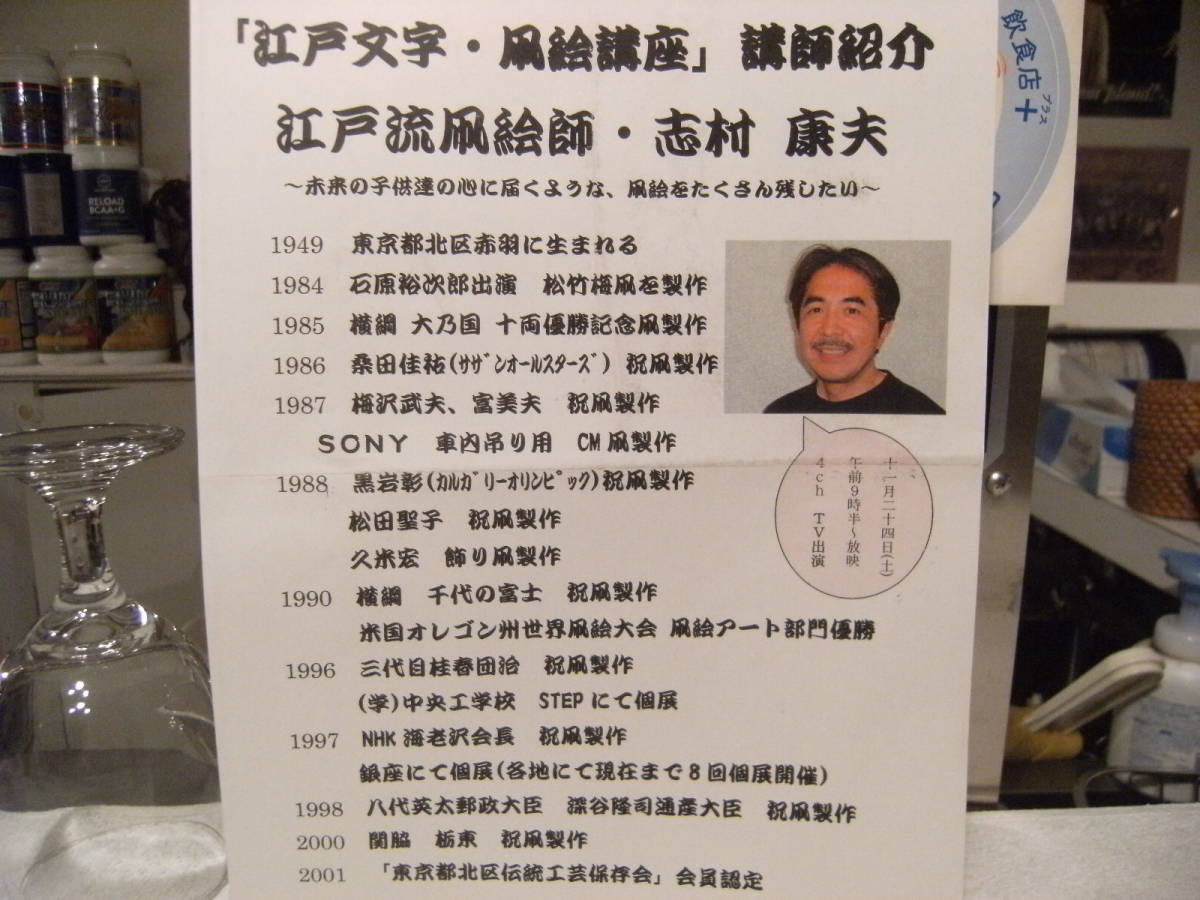 「江戸文字・凧絵講座」講師紹介
江戸流凧絵師・志村 康夫
～未来の子供達の心に届くような、凧絵をたくさん残したい～
1949 東京都北区赤羽に生まれる
1984 石原裕次郎出演 松竹梅凧を製作
1985 横綱 大乃国 十両優勝記念凧製作
1986 桑田佳祐(ｻｻﾞﾝオールスターズ) 祝凧製作
1987 梅沢武夫、富美夫 祝凧製作
SONY 車内吊り用 CM凧製作
1988 黒岩彰(ｶﾙｶﾞﾘｰオリンピック)祝凧製作
松田聖子 祝凧製作
久米宏 飾り凧製作
1990 横綱 千代の富士 祝凧製作
米国オレゴン州世界凧絵大会 凧絵アート部門優勝
1996 三代目桂春団治 祝凧製作
(学)中央工学校 STEPにて個展
1997 NHK海老沢会長 祝凧製作
銀座にて個展(各地にて現在まで8回個展開催)
1998 八代英太郵政大臣 深谷隆司通産大臣 祝凧製作
2000 関脇 栃東 祝凧製作
2001 「東京都北区伝統工芸保存会」会員認定
十一月二十四日(土)
午前9時半～放映
4ch TV出演
飲食店+
プラス
RELOAD
BCAA+G